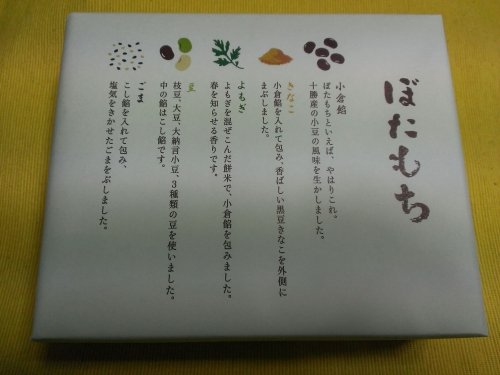 ぼたもち
小倉餡
ぼたもちといえば、やはりこれ。
十勝産の小豆の風味を生かしました。
きなこ
小倉餡を入れて包み、香ばしい黒豆きなこを外側に
まぶしました。
よもぎ
よもぎを混ぜこんだ餅米で、小倉餡を包みました。
春を知らせる香りです。
豆
枝豆、大豆、大納言小豆、3種類の豆を使いました。
中の餡はこし餡です。
ごま
こし餡を入れて包み、
塩気をきかせたごまをまぶしました。